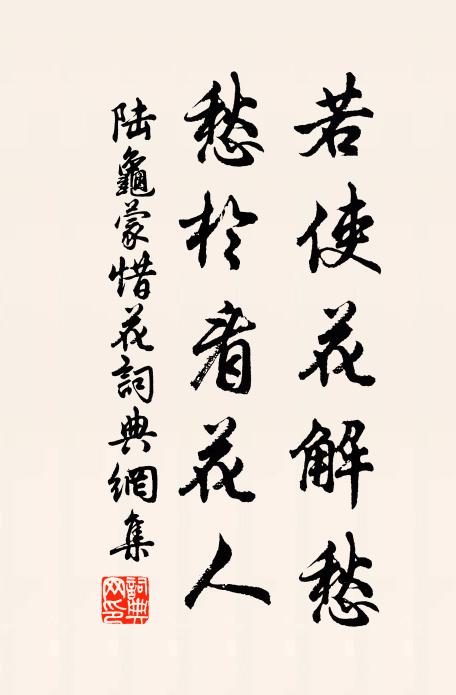 若使花解愁
愁於看花人
陸龜蒙惜花詞典網集
詞典網印